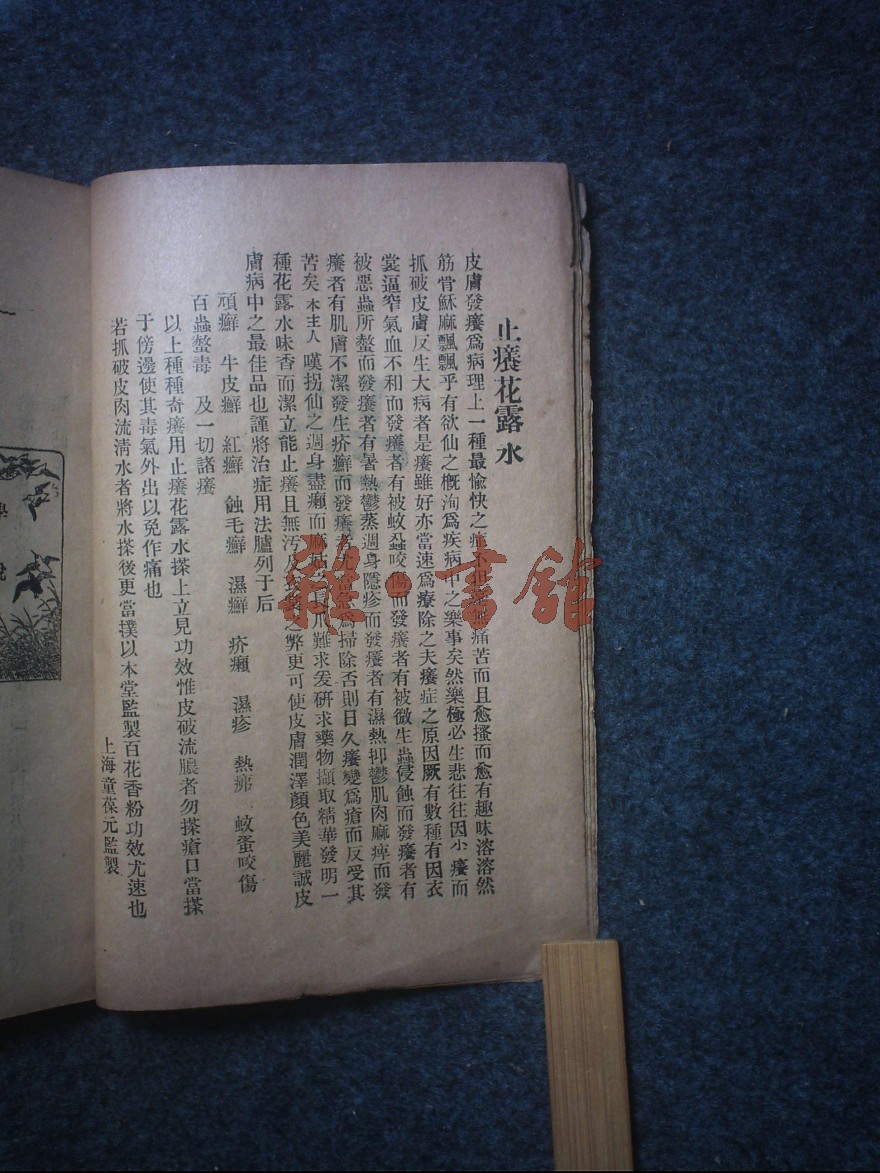 止癢花露水
皮膚發癢爲病理上一種最愉快之症不但毫無痛苦而且愈搔而愈有趣味溶溶然
筋骨穌麻飄飄乎有欲仙之槪洵爲疾病中之樂事矣然樂極必生悲往往因小癢而
抓破皮膚反生大病者是癢雖好亦當速爲療除之夫癢症之原因厥有數種有因衣
裳逼窄氣血不和而發癢者有被蚊蝨咬傷而發癢者有被微生蟲侵蝕而發癢者有
被惡蟲所螫而發癢者有暑熱鬱蒸週身隱疹而發癢者有濕熱抑鬱肌肉麻痺而發
癢者有肌膚不潔發生疥癬而發癢者尤當 爲掃除否則日久癢變爲瘡而反受其
苦矣本主人嘆拐仙之週身盡癩而麻姑 爪難求爰研求藥物擷取精華發明一
種花露水味香而潔立能止癢且無汚 之弊更可使皮膚潤澤顏色美麗誠皮
膚病中之最佳品也謹將治症用法臚列于后
頑癬 牛皮癬 紅癬 蝕毛癬 濕癬 疥癩 濕疹 熱疿 蚊蛋咬傷
百蟲螫毒 及一切諸癢
以上種種奇癢用止癢花露水搽上立見功效惟皮破流膿者勿搽瘡口當搽
于傍邊使其毒氣外出以免作痛也
若抓破皮肉流淸水者將水搽後更當撲以本堂監製百花香粉功效尤速也
上海童葆元監製
雜·書館